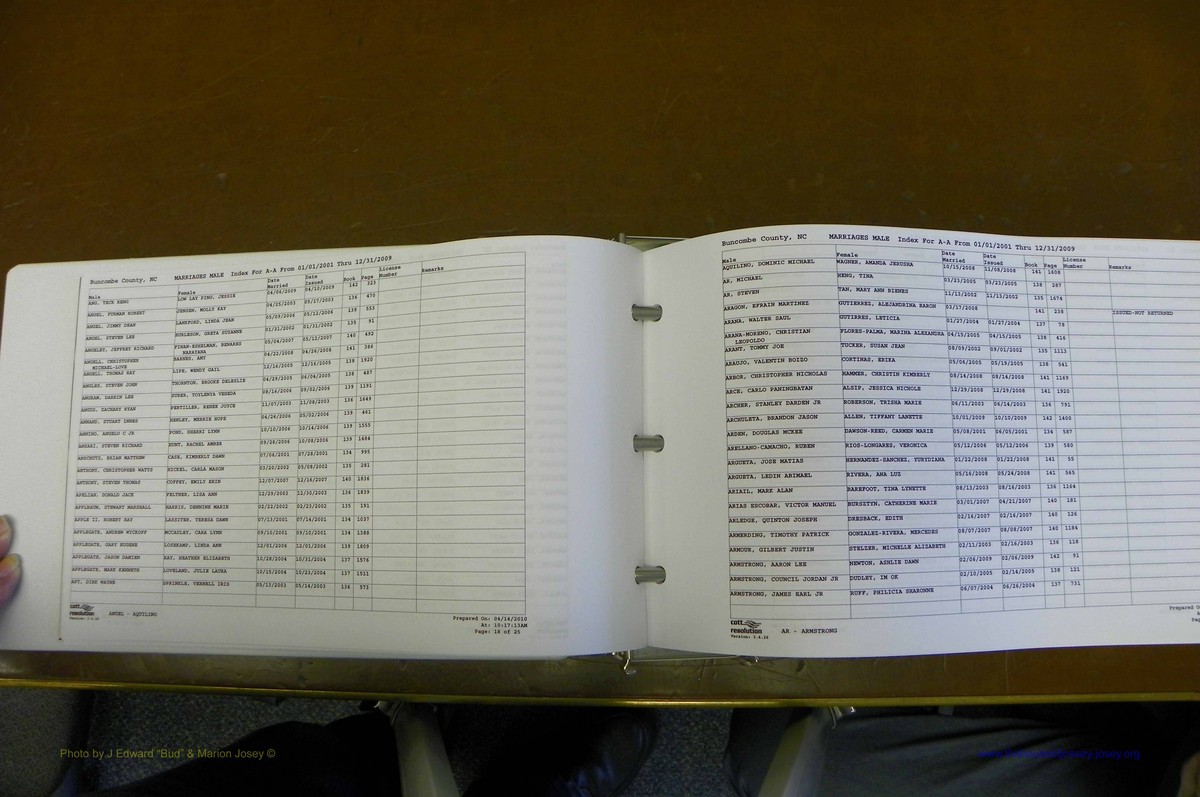 Buncombe County, NC MARRIAGES MALE Index For A-A From 01/01/2001 Thru 12/31/2009
Male Female Date Married Date Issued Book Page License Number Remarks
ANG, TECK KENG LOW LAY PING, JESSIE 04/06/2009 04/10/2009 142 323
ANGEL, FURMAN ROBERT JENSEN, MOLLY KAY 04/25/2003 05/17/2003 136 470
ANGEL, JIMMY DEAN LANKFORD, LINDA JEAN 05/09/2006 05/13/2006 139 553
ANGEL, STEVEN LEE BURLESON, GRETA SUZANNE 01/31/2002 01/31/2002 135 91
ANGELEY, JEFFREY RICHARD 05/04/2007 05/12/2007 140 492
ANGELL, CHRISTOPHER BARNES, AMY 04/22/2008 04/26/2008 141 386
MICHAEL-LOVE
ANGELL, THOMAS RAY LIPE, WENDY GAIL 12/16/2005 12/16/2005 138 1920
ANGLES, STEVEN JOHN THORNTON, BROOKE 04/29/2005 06/04/2005 138 487
ANGRAM, DARRIN LEE 08/16/2006 09/02/2006 139 1191
ANGUS, ZACHARY RYAN PERTILLER, RENEE JOYCE 11/07/2003 11/08/2003 136 1649
ANNAND, STUART INNES HENLEY, MERRIE HOPE 04/26/2006 05/02/2006 139 461
ANNINO, ANGELO C JR POND, SHERRI LYNN 10/10/2006 10/14/2006 139 1555
ANSARI, STEVEN RICHARD HUNT, RACHEL AMBER 09/28/2006 10/08/2006 139 1484
ANSCHUTZ, BRIAN MATTHEW CASE, KIMBERLY DAWN 07/06/2001 07/28/2001 134 995
ANTHONY, CHRISTOPHER WATTS HICKEL, CARLA MASON 03/20/2002 05/08/2002 135 281
ANTHONY, STEVEN THOMAS COFFEY, EMILY ERIN 12/07/2007 12/16/2007 140 1836
APELIAN, DONALD JACK FELTHER, LISA ANN 12/29/2003 12/30/2003 136 1839
APPLEBUM, STEWART MARSHALL HARRIS, DEHNINE MARIE 02/22/2002 02/23/2002 135 191
APPLE II, ROBERT RAY LASSITER, TERESA DAWN 07/13/2001 07/14/2001 134 1037
APPLEGATE, ANDREW WYCKOFF MCCAULEY, CARA LYNN 09/10/2001 09/10/2001 134 1388
APPLEGATE, GARY EUGENE LOSEKAMP, LINDA ANN 12/01/2006 12/01/2006 139 1809
APPLEGATE, JASON DAMIEN RAY, HEATHER ELIZABETH 10/28/2004 10/31/2004 137 1576
APPLEGATE, MARK KENNETH LOVELAND, JULIE LAURA 10/15/2004 10/23/2004 137 1511
APT, DIRK WAYNE SPRINKLE, VERNELL IRIS 05/13/2003 05/14/2003 136 572
cott resolution
ANGEL - AQUILING
Prepared On: 04/14/2010
At: 10:17:13AM
Page: 18 of 25
Buncombe County, NC MARRIAGES MALE Index For A-A From 01/01/2001 Thru 12/31/2009
Male Female Date Married Date Issued Book Page License Number Remarks
AQUILING, DOMINIC MICHAEL WAGNER, AMANDA JERUSHA 10/15/2008 11/08/2008 141 1608
AR, MICHAEL HENG, TINA 03/23/2005 03/23/2005 138 287
AR, STEVEN TAN, MARY ANN BIENES 11/13/2002 11/13/2002 135 1674
ARAGON, EFRAIN MARTINEZ GUTIERREZ, ALEJANDRINA BARON 03/17/2008 141 238 ISSUED-NOT RETURNED
ARANA, WALTER SAUL GUTIERRES, LETICIA 01/27/2004 01/27/2004 137 78
ARANA-MORENO, CHRISTIAN FLORES-PALMA, MARINA ALEXANDRA 04/15/2005 04/15/2005 138 416
LEOPOLDO
ARANT, TOMMY JOE TUCKER, SUSAN JEAN 08/09/2002 09/01/2002 135 1113
ARAUJO, VALENTIN BOIZO CORTINAS, ERIKA 05/06/2005 05/19/2005 138 541
ARBOR, CHRISTOPHER NICHOLAS HAMMER, CHRISTIN KIMBERLY 08/14/2008 08/14/2008 141 1169
ARCE, CARLO PANINGBATAN ALSIP, JESSICA NICHOLE 12/29/2008 12/29/2008 141 1920
ARCHER, STANLEY DARDEN JR ROBERSON, TRISHA MARIE 06/11/2003 06/14/2003 136 791
ARCHULETA, BRANDON JASON ALLEN, TIFFANY LANETTE 10/01/2009 10/10/2009 142 1400
ARDEN, DOUGLAS MCKEE DAWSON-REED, CARMEN MARIE 05/08/2001 06/05/2001 134 587
ARELLANO-CAMACHO, RUBEN RIOS-LONGARES, VERONICA 05/12/2006 05/13/2006 139 580
ARGUETA, JOSE MATIAS HERNANDEZ-SANCHEZ, YURYDIANA 01/22/2008 01/22/2008 141 55
ARGUETA, LEDIN ABIMAEL RIVERA, ANA LUZ 05/16/2008 05/24/2008 141 565
ARIAIL, MARK ALAN BAREFOOT, TINA LYNETTE 08/13/2003 08/16/2003 136 1164
ARIAS ESCOBAR, VICTOR MANUEL BURSZTYN, CATHERINE MARIE 03/01/2007 04/21/2007 140 181
ARLEDGE, QUINTON JOSEPH DRESBACK, EDITH 02/16/2007 02/16/2007 140 126
ARMERDING, TIMOTHY PATRICK GONZALEZ-RIVERA, MERCEDES 08/07/2007 08/08/2007 140 1184
ARMOUR, GILBERT JUSTIN STELZER, MICHELLE ALIZABETH 02/11/2003 02/16/2003 136 118
ARMSTRONG, AARON LEE NEWTON, ASHLIE DAWN 02/06/2009 02/06/2009 142 91
ARMSTRONG, COUNCIL JORDAN JR DUDLEY, IM OK 02/10/2005 02/14/2005 138 121
ARMSTRONG, JAMES EARL JR RUFF, PHILICIA SHARONNE 06/07/2004 06/26/2004 137 731
cott resolution
AR - ARMSTRONG
Prepared O
Photo by J Edward "Bud" & Marion Josey ©